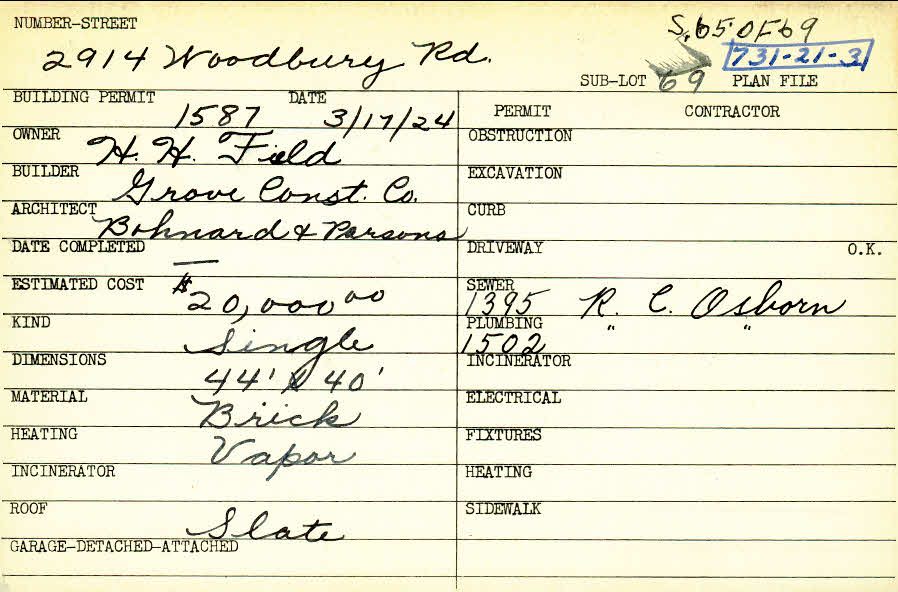 NUMBER-STREET
S.65'OF69
2914 Woodbury Rd.
731-21-3
SUB-LOT 69 PLAN FILE
BUILDING PERMIT 1587 DATE 3/17/24
PERMIT CONTRACTOR
OWNER H. H. Field
OBSTRUCTION
BUILDER Grove Const. Co.
EXCAVATION
ARCHITECT Bohnard & Parsons
CURB
DATE COMPLETED —
DRIVEWAY O.K.
ESTIMATED COST $20,000 00
SEWER 1395 R. C. Osborn
KIND Single
PLUMBING 1502 " "
DIMENSIONS 44' x 40'
INCINERATOR
MATERIAL Brick
ELECTRICAL
HEATING Vapor
FIXTURES
INCINERATOR
HEATING
ROOF Slate
SIDEWALK
GARAGE-DETACHED-ATTACHED